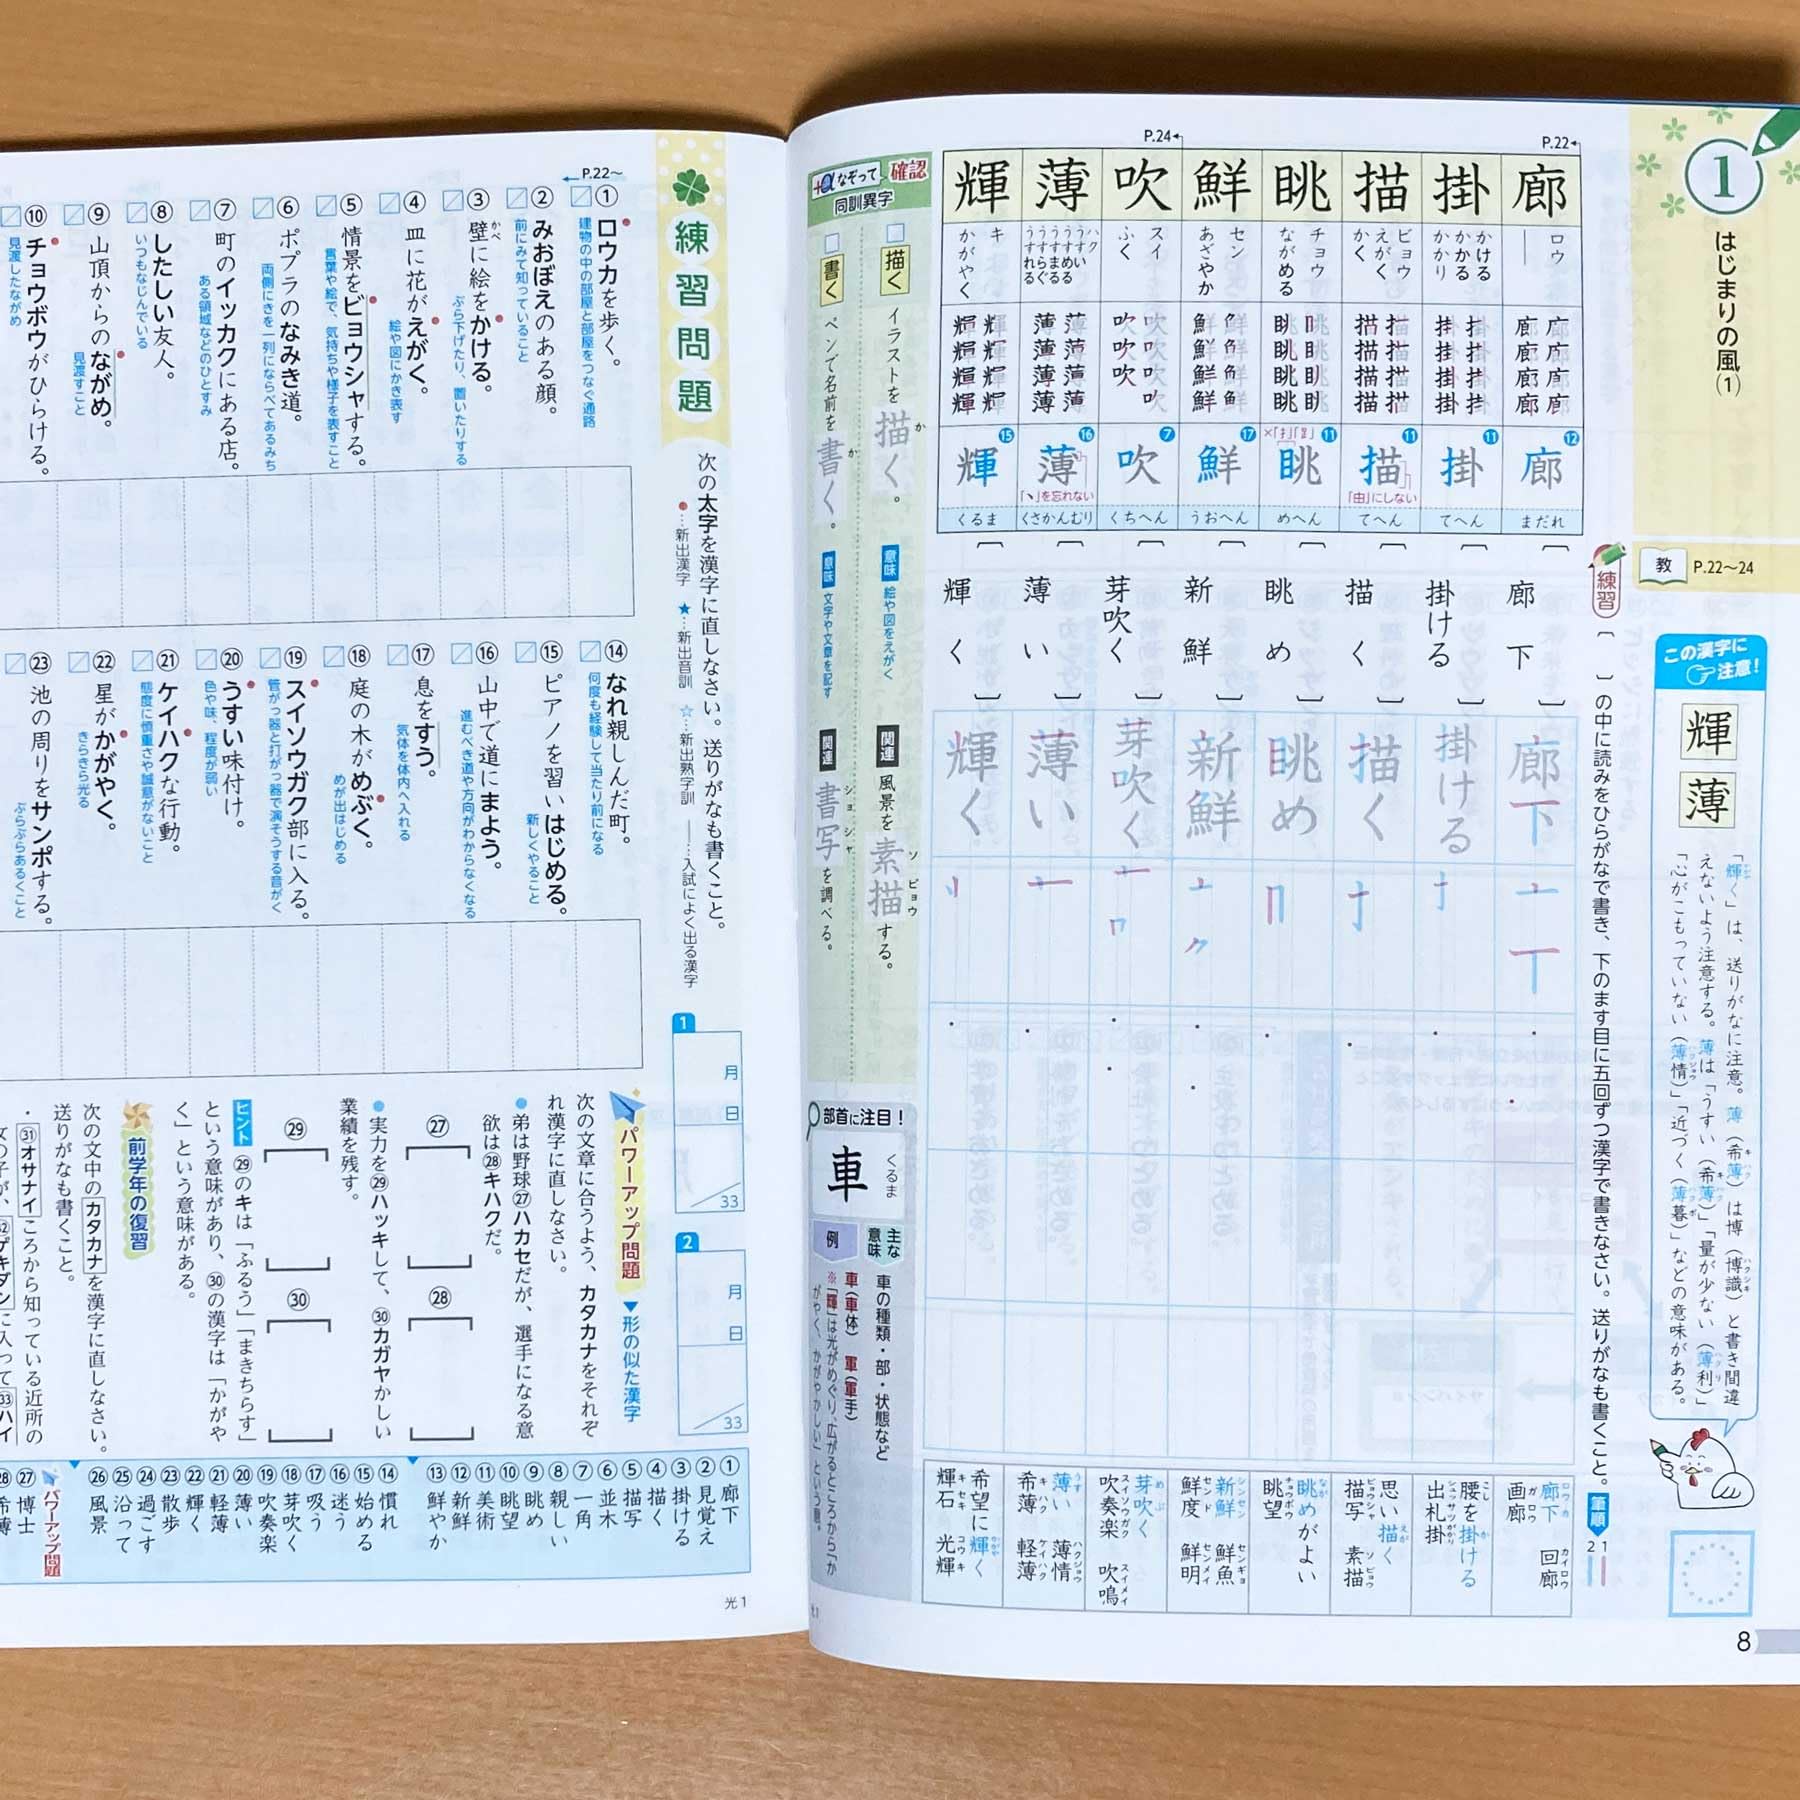 1
はじまりの風(1)
教 P.22〜24
この漢字に注意!
輝
薄
「輝く」は、送りがなに注意。薄(希薄)は博(博識)と書き間違
えないよう注意する。薄は「うすい(希薄)」「量が少ない(薄利)」
「心がこもっていない(薄情)」「近づく(薄暮)」などの意味がある。
8
P.22
P.24
廊 掛 描 眺 鮮 吹 薄 輝
ロウ
かける
かかる
かかり
ビョウ
えがく
かく
チョウ
ながめる
セン
あざやか
スイ
ふく
ハク
うすい
うすめる
うすまる
うすらぐ
うすれる
キ
かがやく
廊 廊 廊 廊 廊 廊 廊 廊
掛 掛 掛 掛 掛 掛 掛 掛
描 描 描 描 描 描 描 描
鮮 鮮 鮮 鮮 鮮 鮮 鮮 鮮
薄 薄 薄 薄 薄 薄 薄 薄
輝 輝 輝 輝 輝 輝 輝 輝
廊 12 まだれ
掛 11 てへん
描 11 「由」にしない てへん
眺 11 めへん
鮮 17 うおへん
吹 7 くちへん
薄 16 「丶」を忘れない くさかんむり
輝 15 くるま
練習 〔 〕の中に読みをひらがなで書き、下のます目に五回ずつ漢字で書きなさい。送りがなも書くこと。
筆順 1 2
廊下
掛ける
描く
眺め
新鮮
芽吹く
薄い
輝く
廊下
掛ける
描く
眺め
新鮮
芽吹く
薄い
輝く
廊下 回廊
画廊
腰を掛ける
出札掛
思い描く
描写 素描
眺めがよい
眺望
新鮮 鮮魚
鮮度 鮮明
芽吹く
吹奏楽 吹鳴
薄い 薄情
希薄 軽薄
希望に輝く
輝石 光輝
+αなぞって確認
同訓異字
描く イラストを描く。 意味 絵や図をえがく 関連 風景を素描する。
書く ペンで名前を書く。 意味 文字や文章を記す 関連 書写を調べる。
部首に注目!
車 くるま
主な意味 車の種類・部・状態など
例 車(車体) 軍(軍手)
※「輝」は光がめぐり、広がるところから「か
がやく、かがやかしい」という意。
練習問題
次の太字を漢字に直しなさい。送りがなも書くこと。
●…新出漢字 ★…新出音訓 ☆…新出熟字訓 ――…入試によく出る漢字
P.22〜
① ロウカを歩く。
建物の中の部屋と部屋をつなぐ通路
② みおぼえのある顔。
前にみて知っていること
③ 壁に絵をかける。
ぶら下げたり、置いたりする
④ 皿に花がえがく。
絵や図にかき表す
⑤ 情景をビョウシャする。
言葉や絵で、気持ちや様子を表すこと
⑥ ポプラのなみき道。
両側にきを一列にならべてあるみち
⑦ 町のイッカクにある店。
ある領域などのひとすみ
⑧ したしい友人。
いつもなじんでいる
⑨ 山頂からのながめ。
見渡すこと
⑩ チョウボウがひらける。
見渡したながめ
⑭ なれ親しんだ町。
何度も経験して当たり前になる
⑮ ピアノを習いはじめる。
新しくやること
⑯ 山中で道にまよう。
進むべき道や方向がわからなくなる
⑰ 息をすう。
気体を体内へ入れる
⑱ 庭の木がめぶく。
めが出はじめる
⑲ スイソウガク部に入る。
管がっ器と打がっ器で演そうする音がく
⑳ うすい味付け。
色や味、程度が弱い
㉑ ケイハクな行動。
態度に慎重さや誠意がないこと
㉒ 星がかがやく。
きらきら光る
㉓ 池の周りをサンポする。
ぶらぶらあるくこと
1 月 日 /33
2 月 日 /33
パワーアップ問題 ▼形の似た漢字
次の文章に合うよう、カタカナをそれぞ
れ漢字に直しなさい。
● 弟は野球㉗ハカセだが、選手になる意
欲は㉘キハクだ。
㉗
㉘
● 実力を㉙ハッキして、㉚カガヤかしい
業績を残す。
㉙
㉚
ヒント ㉙のキは「ふるう」「まきちらす」
という意味があり、㉚の漢字は「かがや
く」という意味がある。
前学年の復習
次の文中のカタカナを漢字に直しなさい。
送りがなも書くこと。
・㉛オサナイころから知っている近所の
① 廊下
② 見覚え
③ 掛ける
④ 描く
⑤ 描写
⑥ 並木
⑦ 一角
⑧ 親しい
⑨ 眺め
⑩ 眺望
⑪ 美術
⑫ 新鮮
⑬ 鮮やか
⑭ 慣れ
⑮ 始める
⑯ 迷う
⑰ 吸う
⑱ 芽吹く
⑲ 吹奏楽
⑳ 薄い
㉑ 軽薄
㉒ 輝く
㉓ 散歩
㉔ 過ごす
㉕ 沿って
㉖ 風景
パワーアップ問題
㉗ 博士
希薄
光1